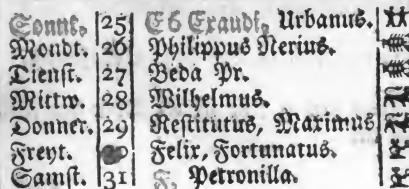 Sonnt. 25 E6 Exaudi, Urbanus.
Mondt. 26 Philippus Nerius.
Dienst. 27 Beda Pr.
Mittw. 28 Wilhelmus.
Donner. 29 Restitutus, Maximus
Freyt. Felix, Fortunatus.
Samst. 31 F, Petronilla.